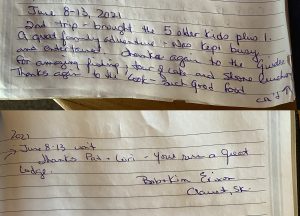 June 8-13, 2021
2nd trip - brought the 5 older kids plus 1.
A great family adventure - Was kept busy
and entertained. Thanks again to the guides
for amazing fishing, tour of Lake and Shore lunches
Thanks again to the Cook - Such good food
2021
June 8-13 con't
Thanks Pat + Lori - You run a Great
Lodge.
Bob + Kim
, SK.